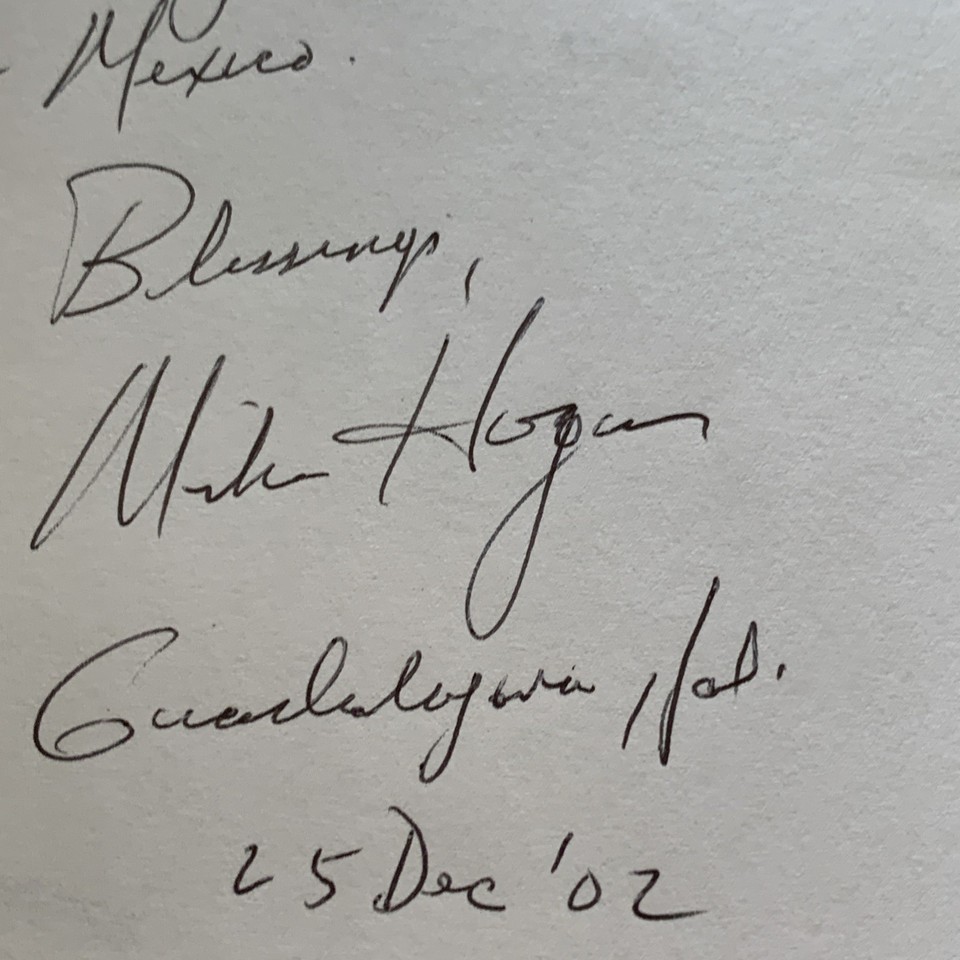 Mexico.
Blessings,
Mike Hogan
Guadalajara, Jal.
25 Dec '02